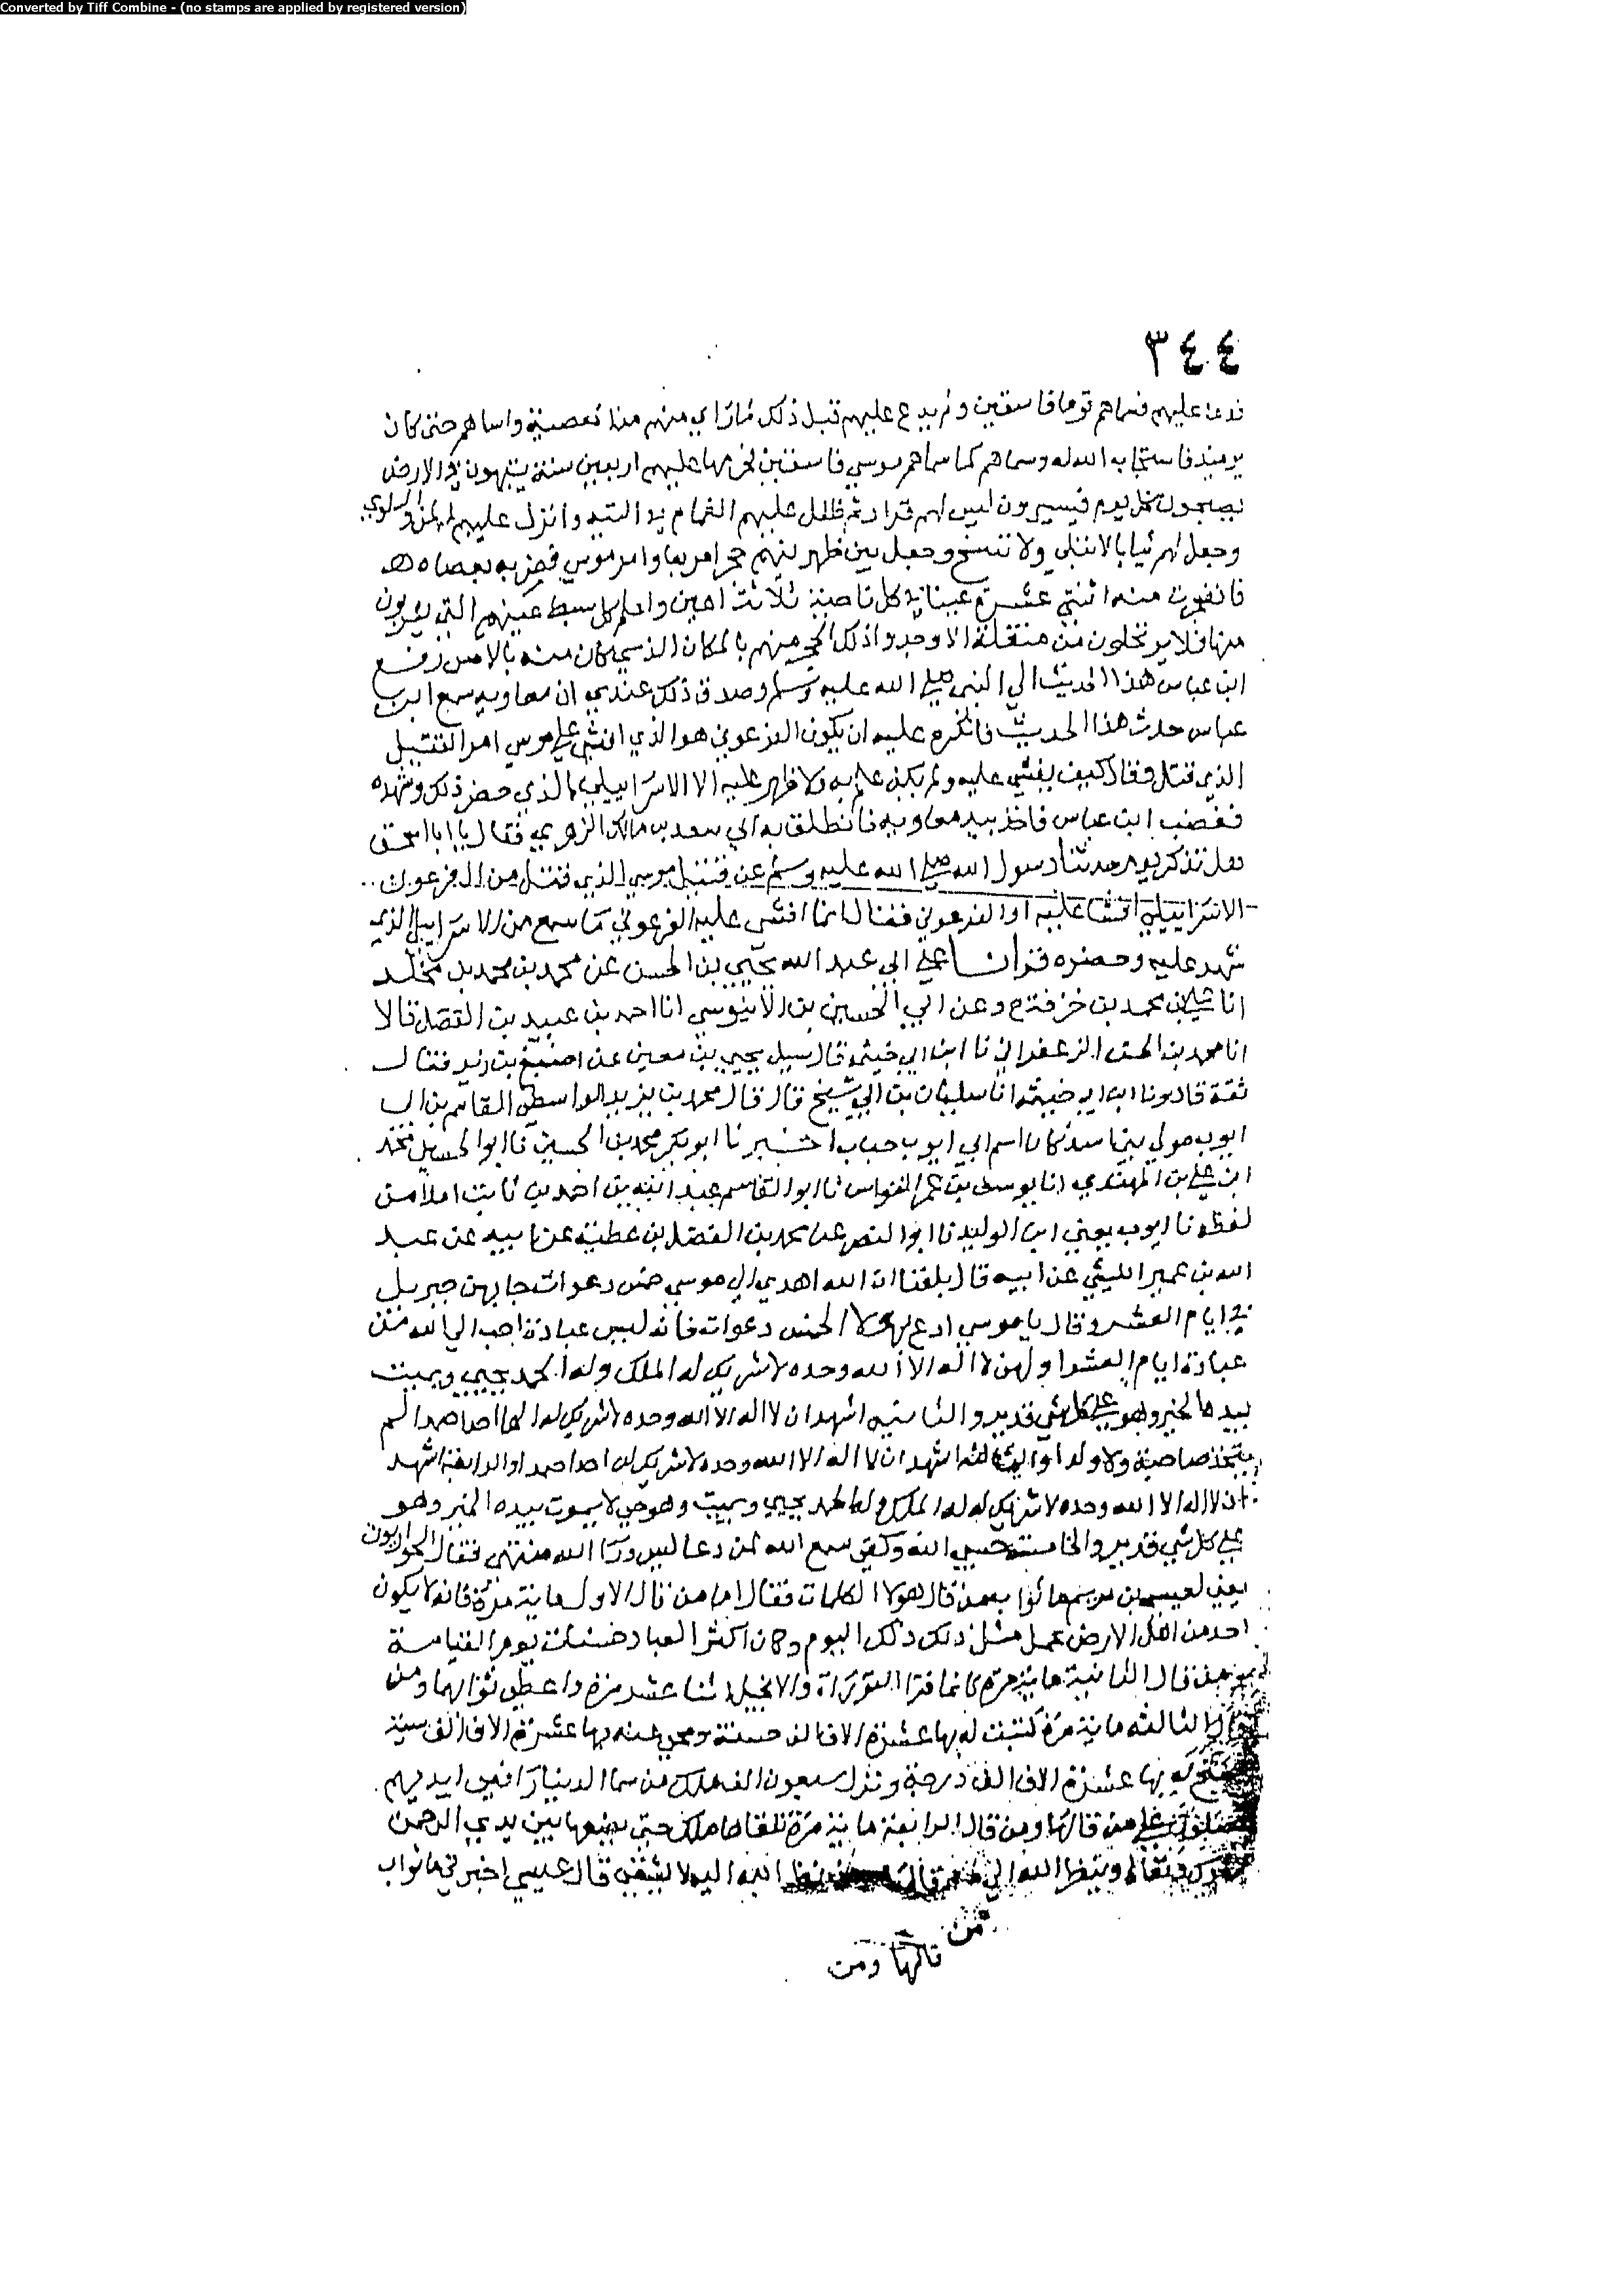 Converted by Tiff Combine - (no stamps are applied by registered version)
٣٤٤
فدعا عليهم فسماهم قوما فاسقين ولم يدع عليهم قبل ذلك لما راي منهم من المعصية واساهم حتى كان
يوميذ فاستجاب الله له وسماهم كما سماهم موسي فاسقين فحرمها عليهم اربعين سنة يتيهون في الارض
يصبحون كل يوم فيسيرون ليس لهم قرار ثم ظلل عليهم الغمام في التيه وانزل عليهم المن والسلوي
وجعل لهم ثيابا لا تبلي ولا تتسخ وجعل بين ظهرنيهم حجرا مربعا وامر موسي فضربه بعصاه
فانفجرت منه اثنتي عشرة عينا في كل ناحية ثلاثة اعين واعلم كل سبط عينهم التي يشربون
منها فلا يرتحلون من منقلة الا وجدوا ذلك الحجر منهم بالمكان الذي كان منه بالامس رفع
ابن عباس هذا الحديث الي النبي صلي الله عليه وسلم وصدق ذلك عندي ان معاويه سمع ابن
عباس حدث هذا الحديث فانكره عليه ان يكون الفرعوني هو الذي افشي علي موسي امر القتيل
الذي قتل وقال كيف يفشي عليه ولم يكن علم به ولا ظهر عليه الا الاسراييلي الذي حضر ذلك وشهده
فغضب ابن عباس فاخذ بيد معاويه فانطلق به الي سعد بن مالك الزهري فقال يا ابا اسحق
هل تذكر يوم حدثنا رسول الله صلي الله عليه وسلم عن قتيل موسي الذي قتل من ال فرعون
الاسراييلي افشا عليه او الفرعوني فقال انما افشى عليه الفرعوني ما سمع من الاسراييلي الذي
شهد عليه وحضره قرانا علي ابي عبد الله يحيي بن الحسن عن محمد بن محمد بن مخلد
انا علي بن محمد بن خزفة ح وعن ابي الحسين بن الابنوسي انا احمد بن عبيد بن الفضل قالا
انا محمد بن الحسين الزعفراني نا ابن ابي خيثمه قال سيل يحيي بن معين عن اصبغ بن زيد فقال
ثقة قال ونا ابن ابي خيثمه انا سليمان بن ابي شيخ قال قال محمد بن يزيد الواسطي القاسم بن ابي
ايوب مولي بني اسد كان اسم ابي ايوب حباب اخبرنا ابو بكر محمد بن الحسين نا ابو الحسين محمد
ابن علي بن المهتدي انا يوسف بن عمر القواس نا ابو القاسم عبد الله بن احمد بن ثابت املا من
لفظه نا ايوب يعني ابن الوليد نا ابو النصر عن محمد بن الفضل بن عطية عن ابيه عن عبد
الله بن عمير الليثي عن ابيه قال بلغنا ان الله اهدي الي موسي خمس دعوات جا بهن جبريل
في ايام العشر وقال يا موسي ادع بهولا الخمس دعوات فانه ليس عبادة احب الي الله من
عبادة ايام العشر اولهن لا اله الا الله وحده لا شريك له له الملك وله الحمد يحيي ويميت
بيده الخير وهو علي كل شي قدير والثانيه اشهد ان لا اله الا الله وحده لا شريك له الها احدا صمدا لم
يتخذ صاحبة ولا ولدا والثالثه اشهد ان لا اله الا الله وحده لا شريك له احدا صمدا والرابعة اشهد
ان لا اله الا الله وحده لا شريك له له الملك وله الحمد يحيي ويميت وهو حي لا يموت بيده الخير وهو
علي كل شي قدير والخامسة حسبي الله وكفي سمع الله لمن دعا ليس ورا الله منتهى فقال الحواريون
يعني لعيسى بن مريم ما ثواب من قال هولا الكلمات فقال اما من قال الاول ماية مرة فانه لا يكون
احد من اهل الارض عمل مثل ذلك ذلك اليوم وكان اكثر العباد حسنات يوم القيامة
ومن قال الثانية ماية مرة كانما قرا التوراة والانجيل اثنا عشر مرة واعطي ثوابهما ومن
قال الثالثه ماية مرة كتبت له بها عشرة الاف الف حسنة ومحي عنه بها عشرة الاف الف سية
ورفع له بها عشرة الاف الف درجة ونزل سبعون الف ملك من سما الدنيا رافعي ايديهم
يصلون علي من قالها ومن قال الرابعة ماية مرة تلقاها ملك حتى يضعها بين يدي الرحمن
وتعالى وينظر الله الي من قالها ومن نظر الله اليه لا يشقى قال عيسي اخبرني ما ثواب
من
قالها ومن